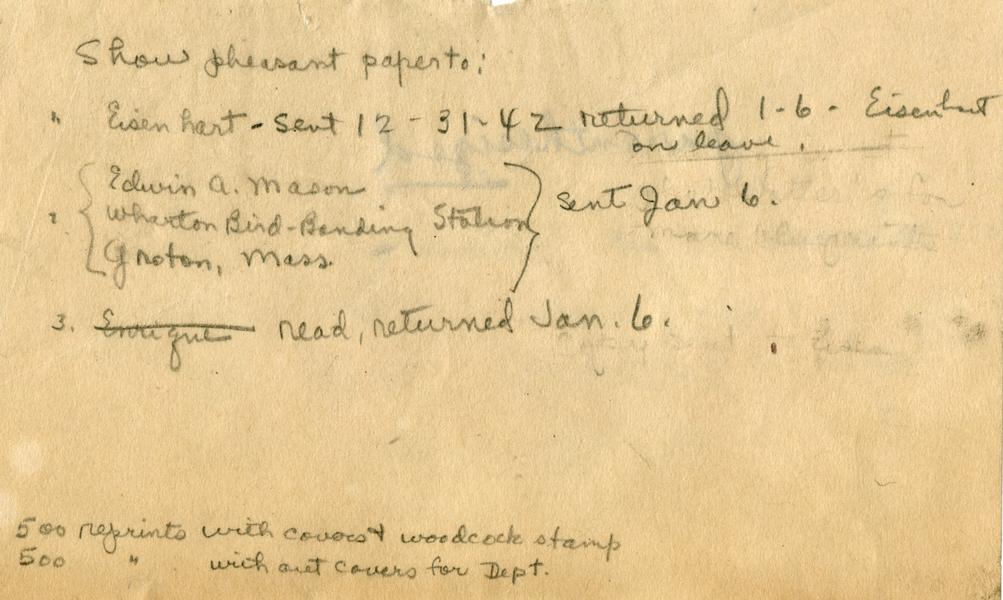 Show pheasant paper to:
" Eisenhart - sent 12-31-42 returned 1-6 - Eisenhart
on leave.
2. Edwin A. Mason
Wharton Bird-Banding Station
Groton, Mass.
sent Jan 6.
3. Enrique read, returned Jan. 6.
500 reprints with covers & woodcock stamp
500 " without covers for Dept.